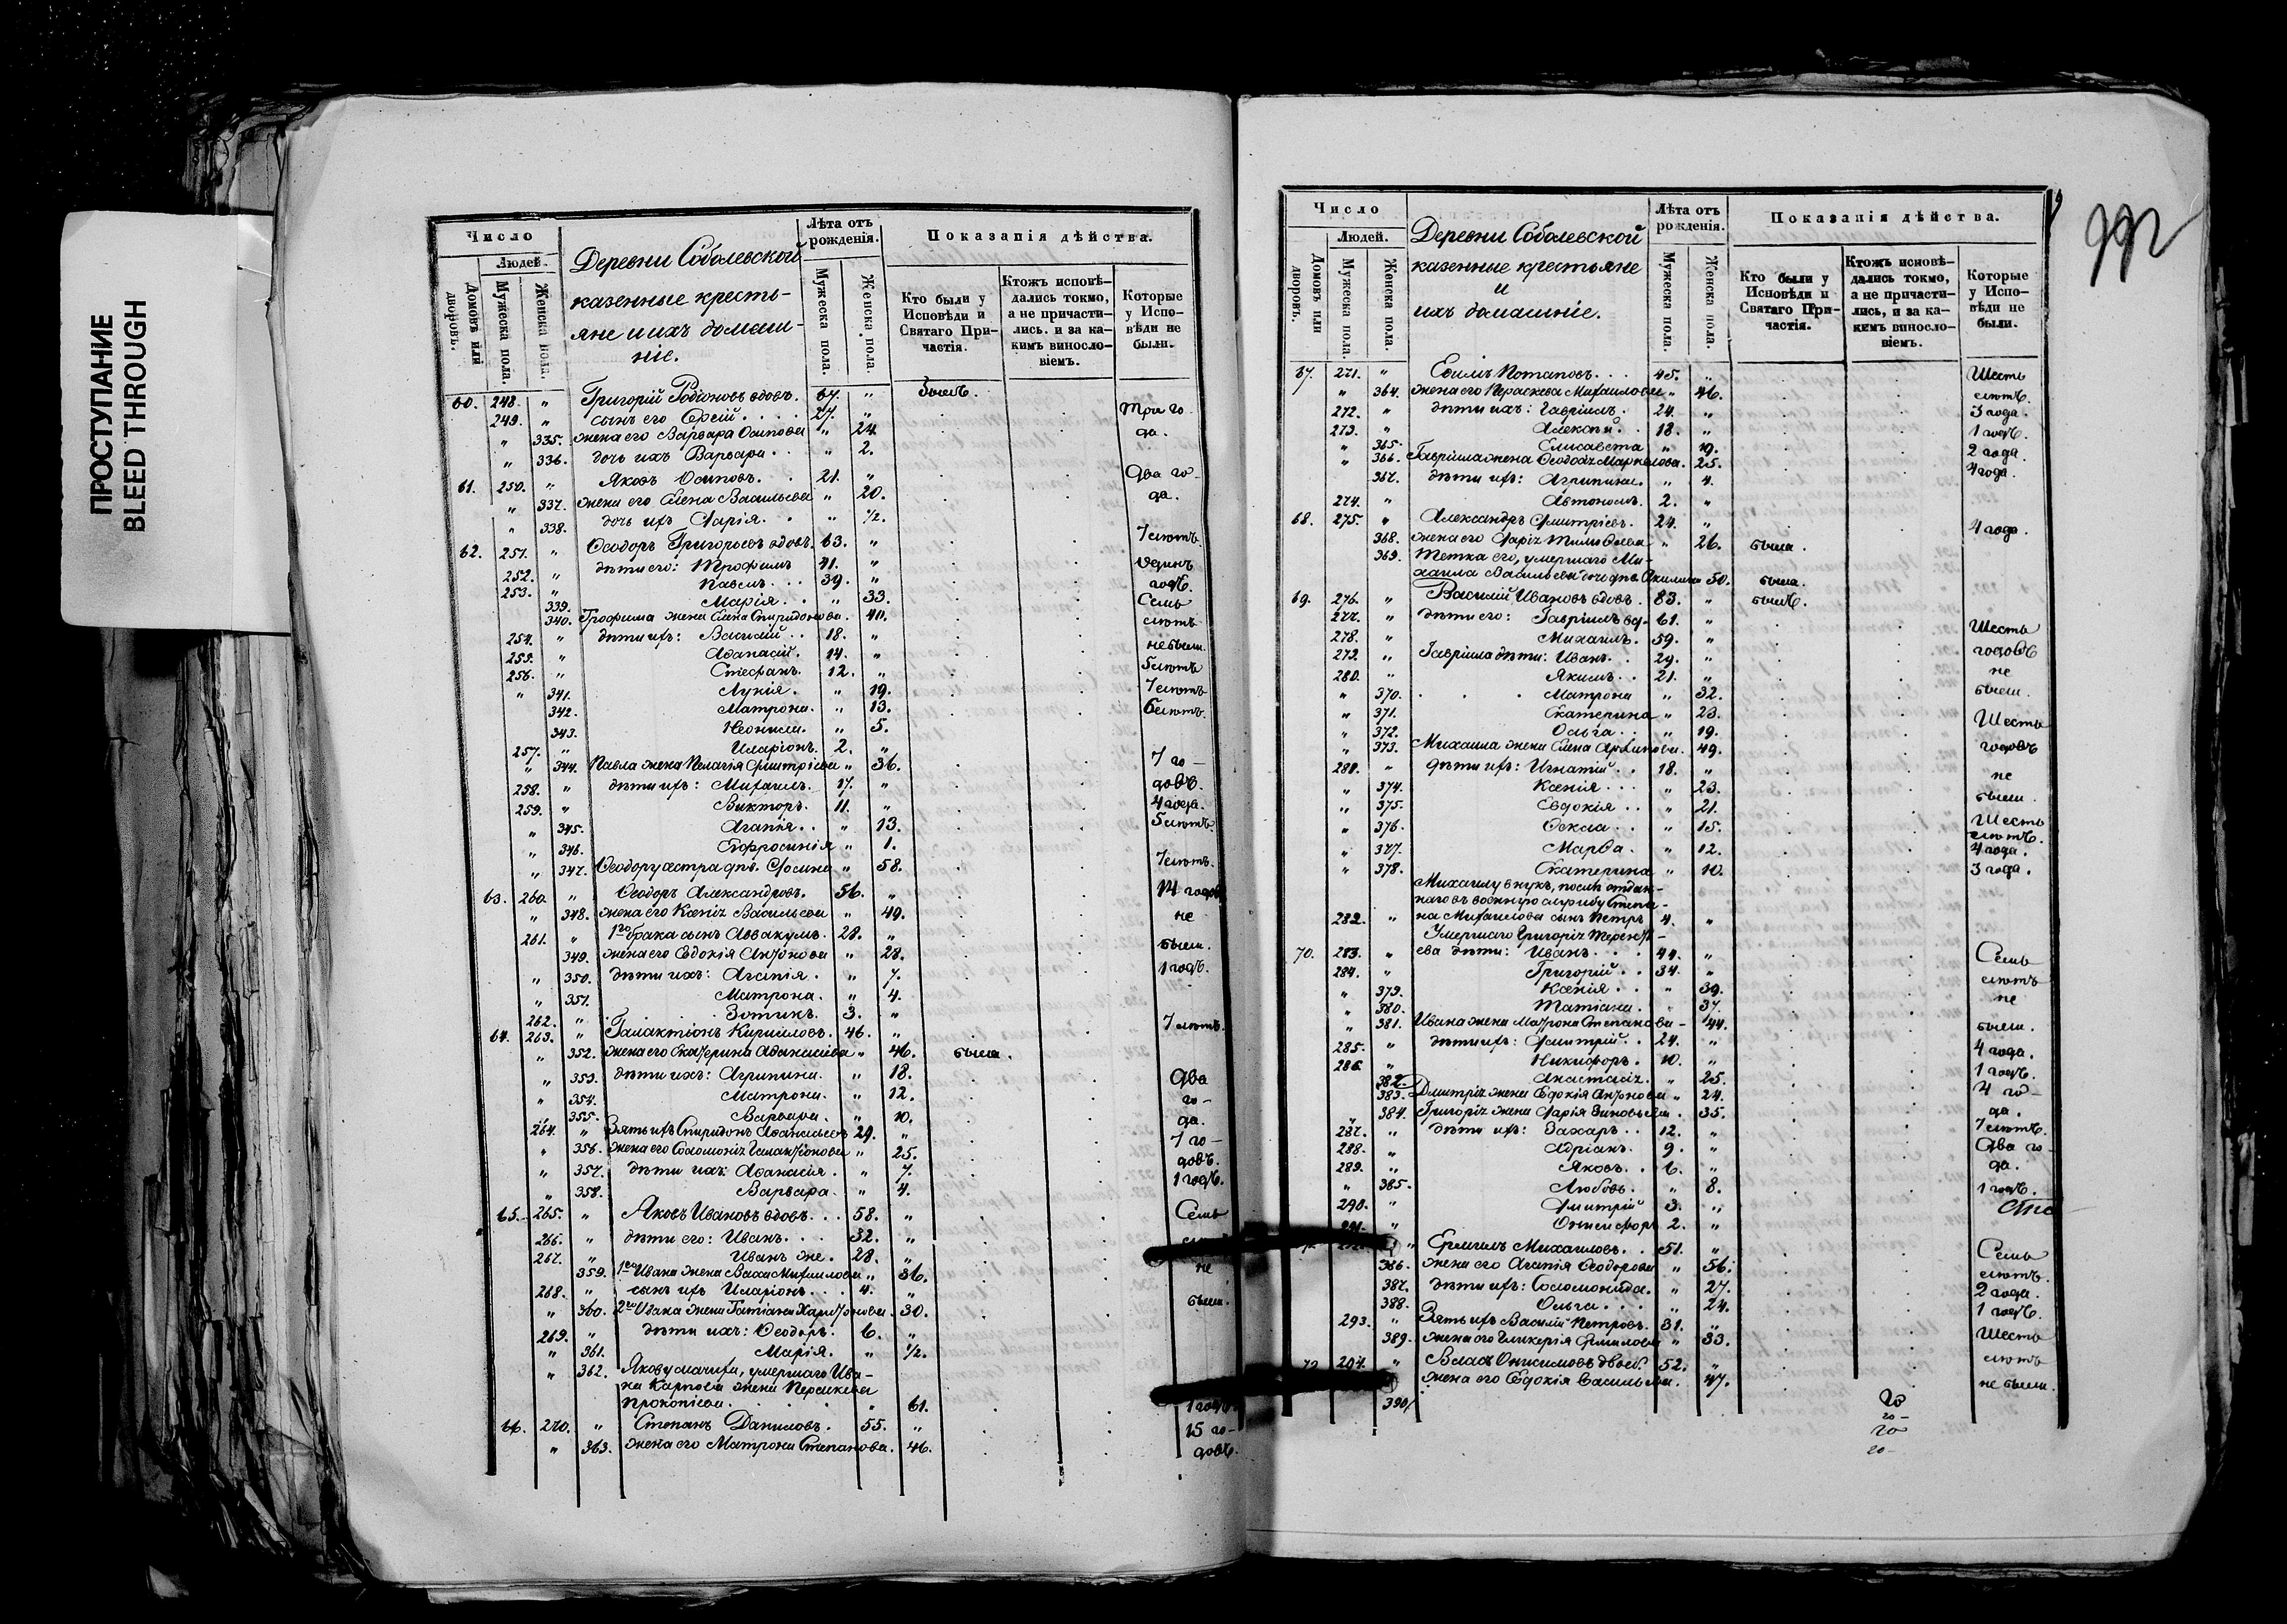 ПРОСТУПАНИЕ
BLEED THROUGH
Число
Людей.
Домовъ или дворовъ.
Мужеска пола.
Женска пола.
Деревни Соболевской
казенные кресть-
яне и ихъ домаш-
ніе.
Лѣта отъ рожденія.
Мужеска пола.
Женска пола.
Показанія дѣйства.
Кто были у Исповѣди и Святаго Причастія.
Ктожъ исповѣдались токмо, а не причастились. и за какимъ винословіемъ.
Которые у Исповѣди не были.
60. 248. " Григорій Родіоновъ вдовъ. 67. " Былъ.
249. " сынъ его 27. " Три го-
" 335. жена его Варвара Осипова " 24. да.
" 336. дочь ихъ Варвара. " 2.
61. 250. " Яковъ Осиповъ. 21. " Два го-
" 337. жена его Елена Васильева " 20. да.
" 338. дочь ихъ Дарія. " 1/2.
62. 251. " Ѳеодоръ Григорьевъ вдовъ. 63. " 7 лѣтъ.
252. " дѣти его: Трофимъ 41. " Одинъ
253. " Павелъ. 39. " годъ.
339. Марія. " 33. Семь
340. Трофима жена Елена Спиридонова. 40. лѣтъ
254. " дѣти ихъ: Василій. 18. " не были.
255. " Аѳанасій. 14. " 5 лѣтъ
256. " Стефанъ. 12. " 7 лѣтъ
" 341. Лукія. " 19.
342. Матрона. " 13. 6 лѣтъ.
343. Неонила. " 5.
257. " Иларіонъ. 2. "
" 344. Павла жена Пелагія Дмитріева " 36. 7 го-
258. " дѣти ихъ: Михаилъ. 17. " довъ.
259. " Викторъ. 11. " 4 года.
" 345. Агапія. " 13. 5 лѣтъ.
" 346. Ефросинія " 1.
" 347. Ѳеодору сестра дѣв. " 58. 7 лѣтъ.
63. 260. " Ѳеодоръ Александровъ. 56. " 14 годовъ
" 348. жена его Ксенія Васильева " 49. не
261. " 1го брака сынъ Аввакумъ. 28. " были.
349. жена его Евдокія Антонова " 28.
" 350. дѣти ихъ: Агапія. " 7. 1 годъ.
" 351. Матрона. " 4.
262. " Зотикъ. 3. "
64. 263. " Галактіонъ Кириловъ. 46. " 7 лѣтъ.
" 352. жена его Екатерина Аѳанасіева " 46. была.
" 353. дѣти ихъ: Агрипина. " 18. Два
" 354. Матрона. " 12. го-
" 355. Варвара. " 10. да.
264. " Зять ихъ Спиридонъ Аѳанасьевъ 29. " 7 го-
" 356. жена его Соломонія Галактіонова " 25. довъ.
" 357. дѣти ихъ: Аѳанасія. " 7. 1 годъ.
" 358. Варвара. " 4.
65. 265. " Яковъ Ивановъ вдовъ. 58. " Семь
266. " дѣти его: Иванъ. 32. "
267. " Иванъ же. 28. " не
359. 1го Ивана жена Васса Михаилова " 36.
268. " сынъ ихъ Иларіонъ. 4. " были.
" 360. 2го Ивана жена Татіана Харитонова. 30.
269. " дѣти ихъ: Ѳеодоръ. 6. "
" 361. Марія. " 1/2.
" 362. Якову мачиха, умершаго Ива-
на Карпова жена Параскева
Прокопіева. " 61. 1 годъ.
66. 270. " Степанъ Даниловъ. 55. " 15 го-
" 363. жена его Матрона Степанова. 46. довъ.
992
Число
Людей.
Домовъ или дворовъ.
Мужеска пола.
Женска пола.
Деревни Соболевской
казенные крестьяне
и
ихъ домашніе.
Лѣта отъ рожденія.
Мужеска пола.
Женска пола.
Показанія дѣйства.
Кто были у Исповѣди и Святаго Причастія.
Ктожъ исповѣдались токмо, а не причастились, и за какимъ винословіемъ.
Которые у Исповѣди не были.
67. 271. " Евѳимъ Потаповъ. 45. " Шесть
" 364. жена его Параскева Михаилова " 46. лѣтъ.
272. " дѣти ихъ: Гавріилъ. 24. " 3 года.
273. " Алексѣй. 18. " 1 годъ.
" 365. Елисавета " 19. 2 года.
" 366. Гавріила жена Ѳеодора Маркелова. 25. 4 года.
367. дѣти ихъ: Агрипина. " 4.
274. " Автономъ. 2. "
68. 275. " Александръ Дмитріевъ. 24. " 4 года.
368. жена его Дарія " 26. была.
369. Тетка его, умершаго Ми-
хаила Васильева дочь дѣв. Акилина 50. была.
69. 276. " Василій Ивановъ вдовъ. 83. " былъ.
277. " дѣти его: Гавріилъ вд. 61. "
278. " Михаилъ. 59. " Шесть
279. " Гавріила дѣти: Иванъ. 29. " годовъ
280. " Якимъ. 21. " не
" 370. Матрона " 32. были.
" 371. Екатерина " 23.
" 372. Ольга. " 19. Шесть
" 373. Михаила жена Елена Архипова. 49. годовъ
281. " дѣти ихъ: Игнатій. 18. " не
" 374. Ксенія " 23. были.
" 375. Евдокія " 21.
" 376. Ѳекла. " 15. Шесть лѣтъ.
" 377. Марѳа. " 12. 4 года.
" 378. Екатерина " 10. 3 года.
Михаилу внукъ, послѣ отдан-
наго въ военную службу Степа-
282. " на Михаилова сынъ Петръ 4. "
Умершаго Григорія Теренть-
70. 283. " ева дѣти: Иванъ. 44. " Семь
284. " Григорій. 34. " лѣтъ
" 379. Ксенія " 39. не
" 380. Татіана. " 37.
" 381. Ивана жена Матрона Степанова 44. были.
285. " дѣти ихъ: Дмитрій. 24. " 4 года.
286. " Никифоръ. 10. " 1 годъ.
382. Анастасія. " 25. 4 го-
383. Дмитрія жена Евдокія Антонова " 24. да.
" 384. Григорія жена Дарія Зиновьева. 35. 7 лѣтъ.
287. " дѣти ихъ: Захаръ. 12. " Два го-
288. " Адріанъ. 9. " да.
289. " Яковъ. 6. "
" 385. Любовь. " 8. 1 годъ.
290. " Дмитрій 3. "
291. " Онисифоръ 2. "
" Ермилъ Михаиловъ. 51. " Семь
386. жена его Агапія Ѳеодорова " 56. лѣтъ.
387. дѣти ихъ: Соломонида. " 27. 2 года.
388. Ольга. " 24. 1 годъ.
293. " Зять ихъ Василій Петровъ. 31. " Шесть
389. жена его Гликерія " 33. лѣтъ
72 294. " Власъ Онисимовъ двоеб. 52. " не были.
390. жена его Евдокія Васильева. 47.
го
го-
го
го-